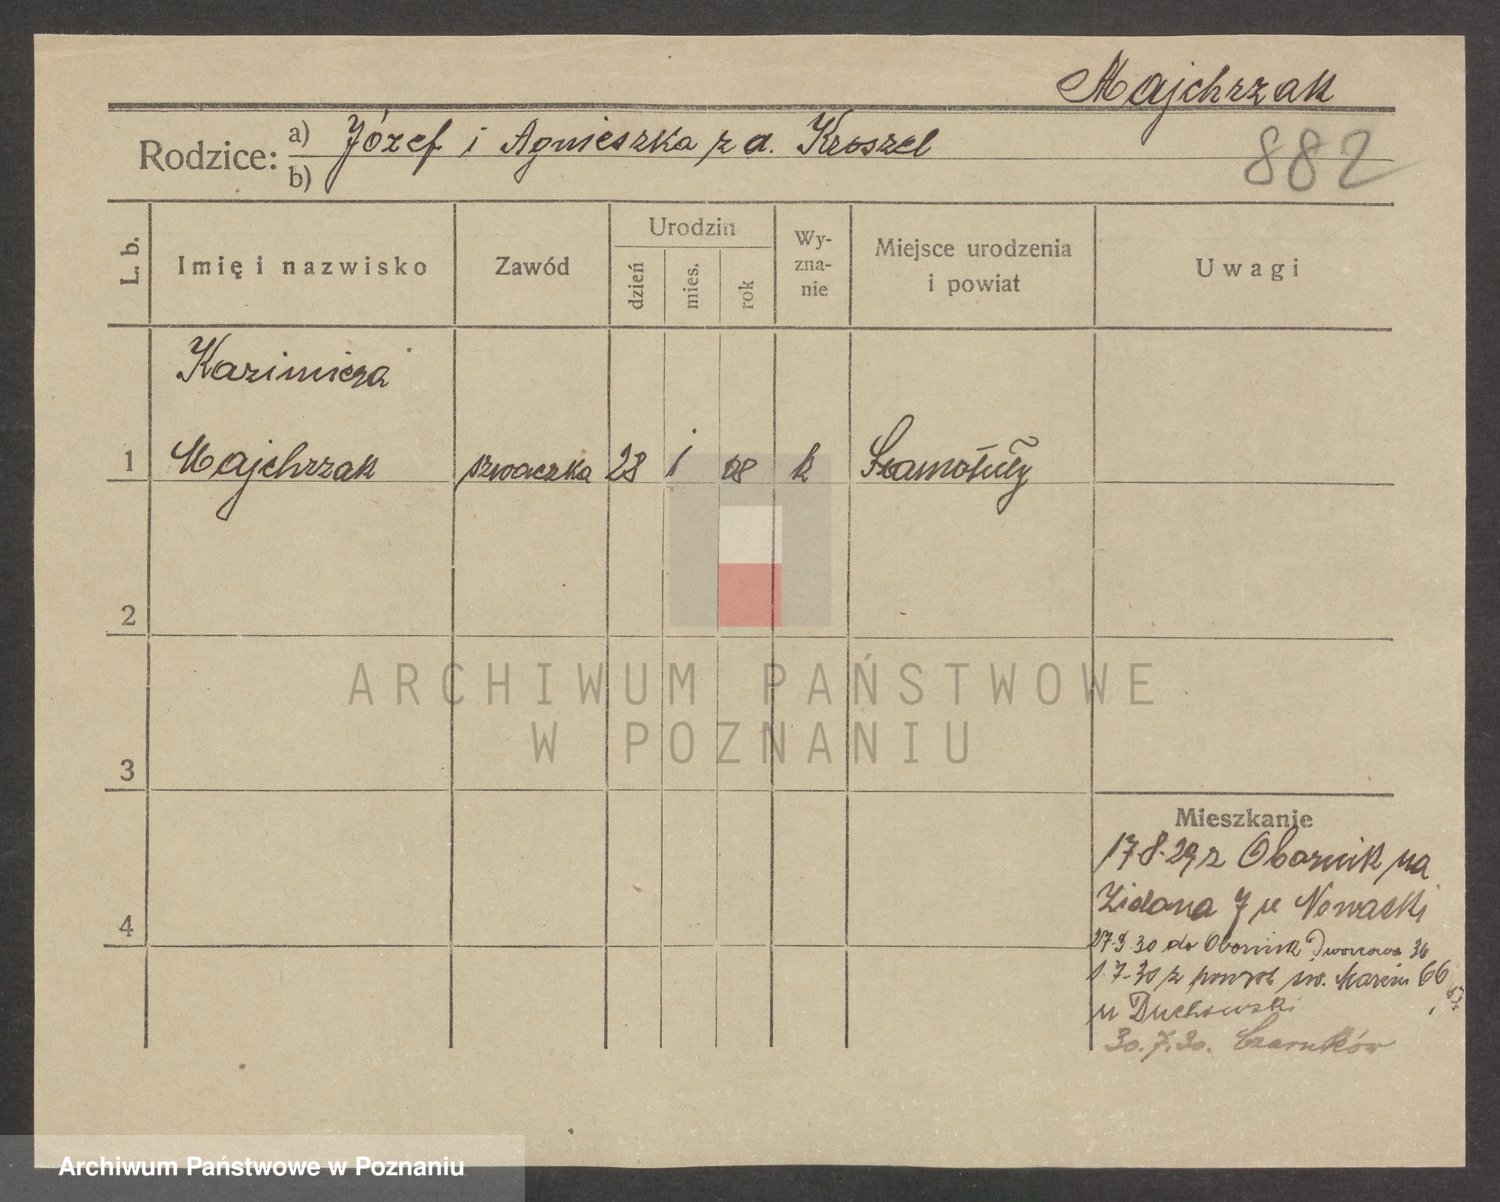 Majchrzak
Rodzice: a) Józef i Agnieszka z d. Kroszel
b)
882
L. b.
Imię i nazwisko
Zawód
Urodzin
dzień
mies.
rok
Wy-
zna-
nie
Miejsce urodzenia
i powiat
Uwagi
Kazimiera
1 Majchrzak szwaczka 28 1 08 k Szamotuły
2
3
4
Mieszkanie
17.8.29 z Obornik na
7 u Nowacki
27.9.30 do Obornik Dworcowa 36
1.7.30 z powrot św. Marcin 66
u Duchowski
30.7.30. Czarnków
ARCHIWUM PAŃSTWOWE
W POZNANIU
Archiwum Państwowe w Poznaniu